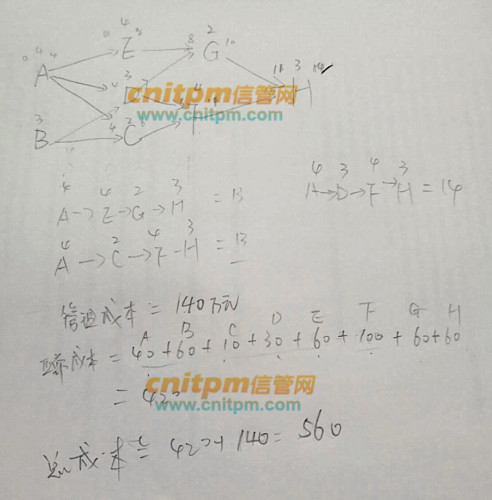 0 4 4
A
0 4
E
8 2 10
G
3
B
3
D
2
C
4
F
11 3 14
H
cnitpm信管网
www.cnitpm.com
4 4 2 3
A→E→G→H = 13
4 3 4 3
A→D→F→H = 14
4 2 4 3
A→C→F-H = 13
管理成本 = 140万元
A B C D E F G H
成本 = 40+60+10+30+60+100+60+60
= 420
cnitpm信管网
www.cnitpm.com
总成本 = 420+140 = 560